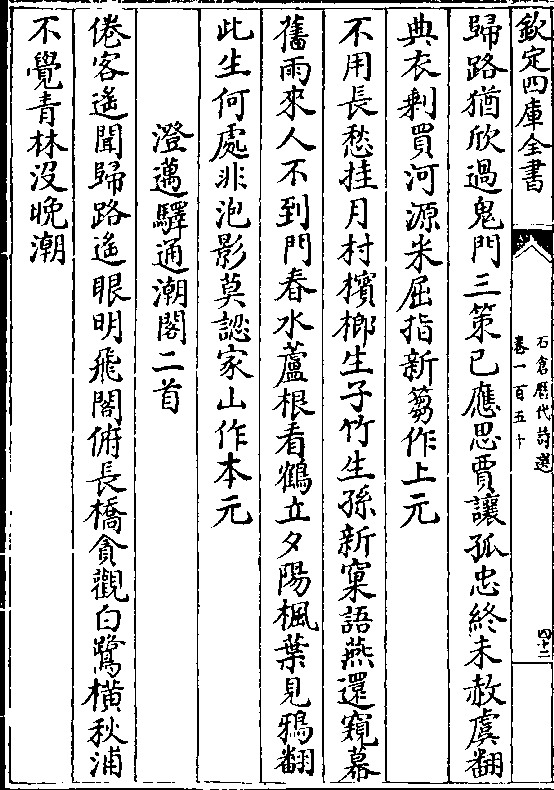 欽定四庫全書
石倉歷代詩選
卷一百五十
四十二
歸路猶欣過鬼門三策已應思賈讓孤忠終未赦虞翻
典衣剩買河源米屈指新蒭作上元
不用長愁挂月村檳榔生子竹生孫新窠語燕還窺幕
舊雨來人不到門春水蘆根看鶴立夕陽楓葉見鴉翻
此生何處非泡影莫認家山作本元
澄邁驛通潮閣二首
倦客遙聞歸路遙眼明飛閣俯長橋貪觀白鷺橫秋浦
不覺青林沒晚潮